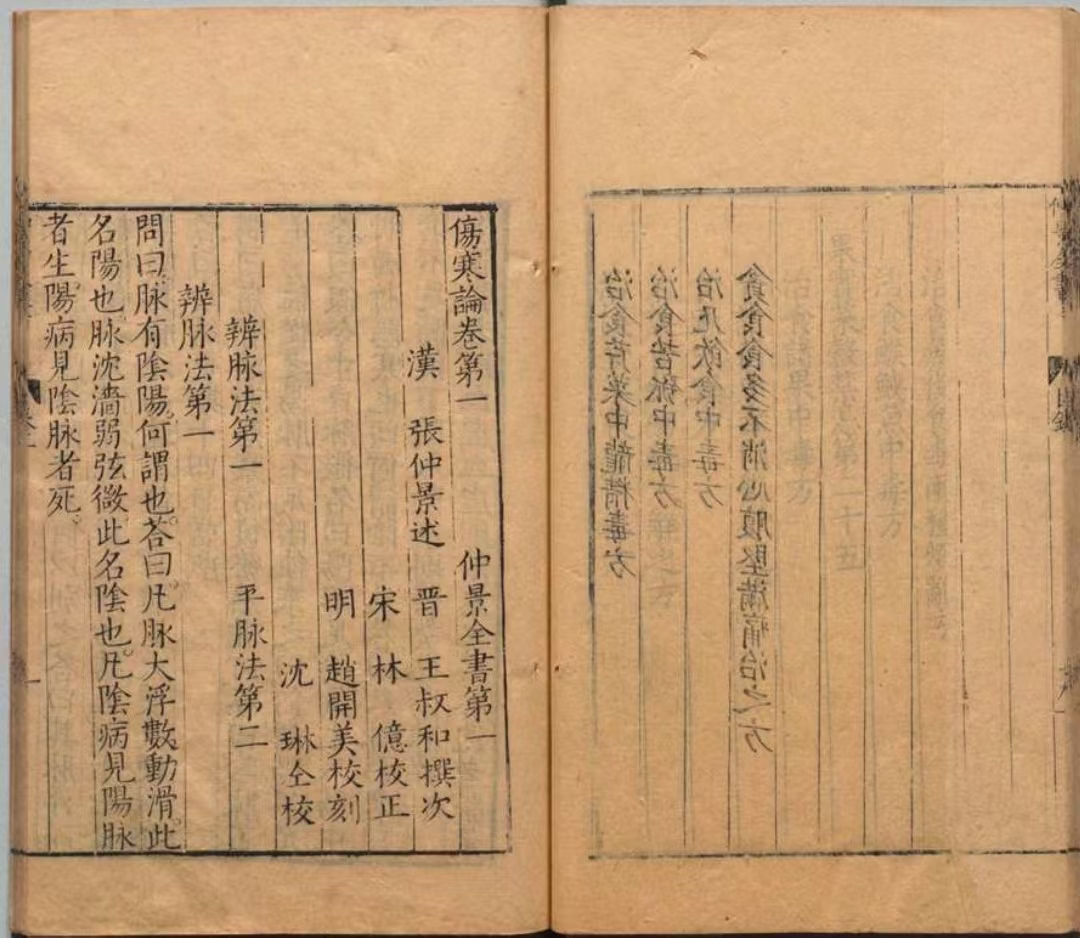 貪食食多不消心腹堅滿痛治之方
治凡飲食中毒方
治食苦瓠中毒方
治食芹菜中龍精毒方
傷寒論卷第一 仲景全書第一
漢 張仲景述 晋 王叔和撰次
宋 林 億校正
明 趙開美校刻
沈 琳仝校
辨脉法第一 平脉法第二
辨脉法第一
問曰。脉有陰陽。何謂也。荅曰。凡脉大浮數動滑。此
名陽也。脉沈濇弱弦微。此名陰也。凡陰病見陽脉
者生。陽病見陰脉者死。